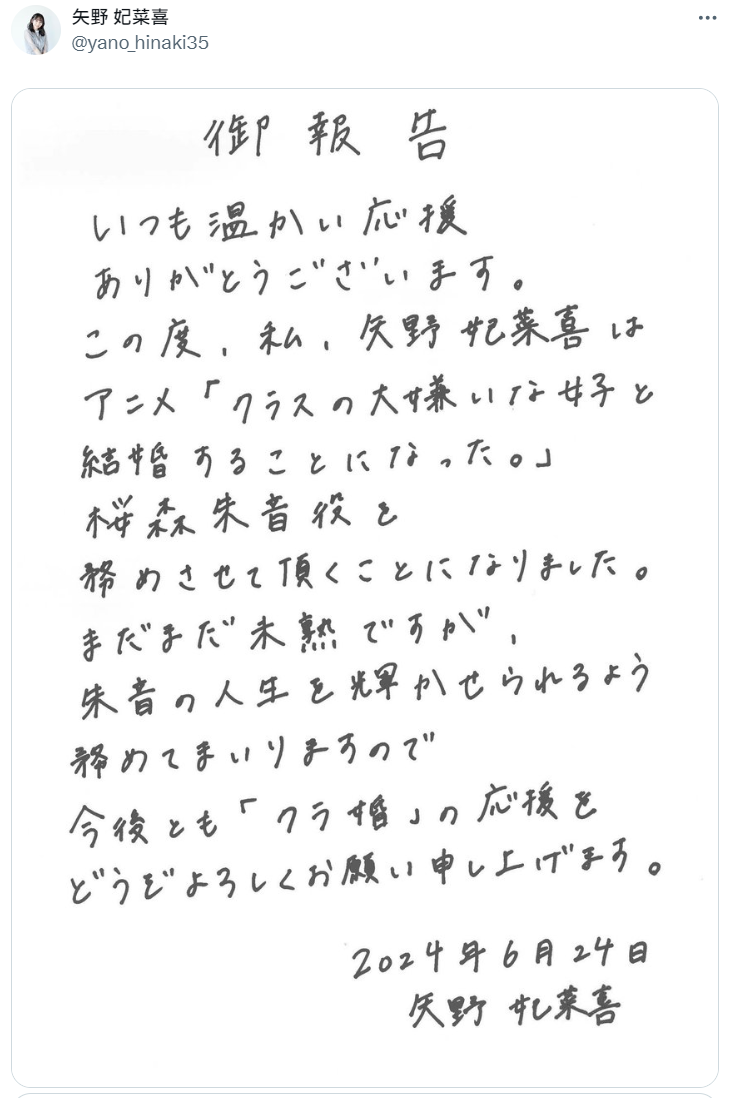 矢野 妃菜喜
@yano_hinaki35
御報告
いつも温かい応援
ありがとうございます。
この度、私、矢野妃菜喜は
アニメ「クラスの大嫌いな女子と
結婚することになった。」
桜森朱音役を
務めさせて頂くことになりました。
まだまだ未熟ですが、
朱音の人生を輝かせられるよう
務めてまいりますので
今後とも「クラ婚」の応援を
どうぞよろしくお願い申し上げます。
2024年6月24日
矢野 妃菜喜